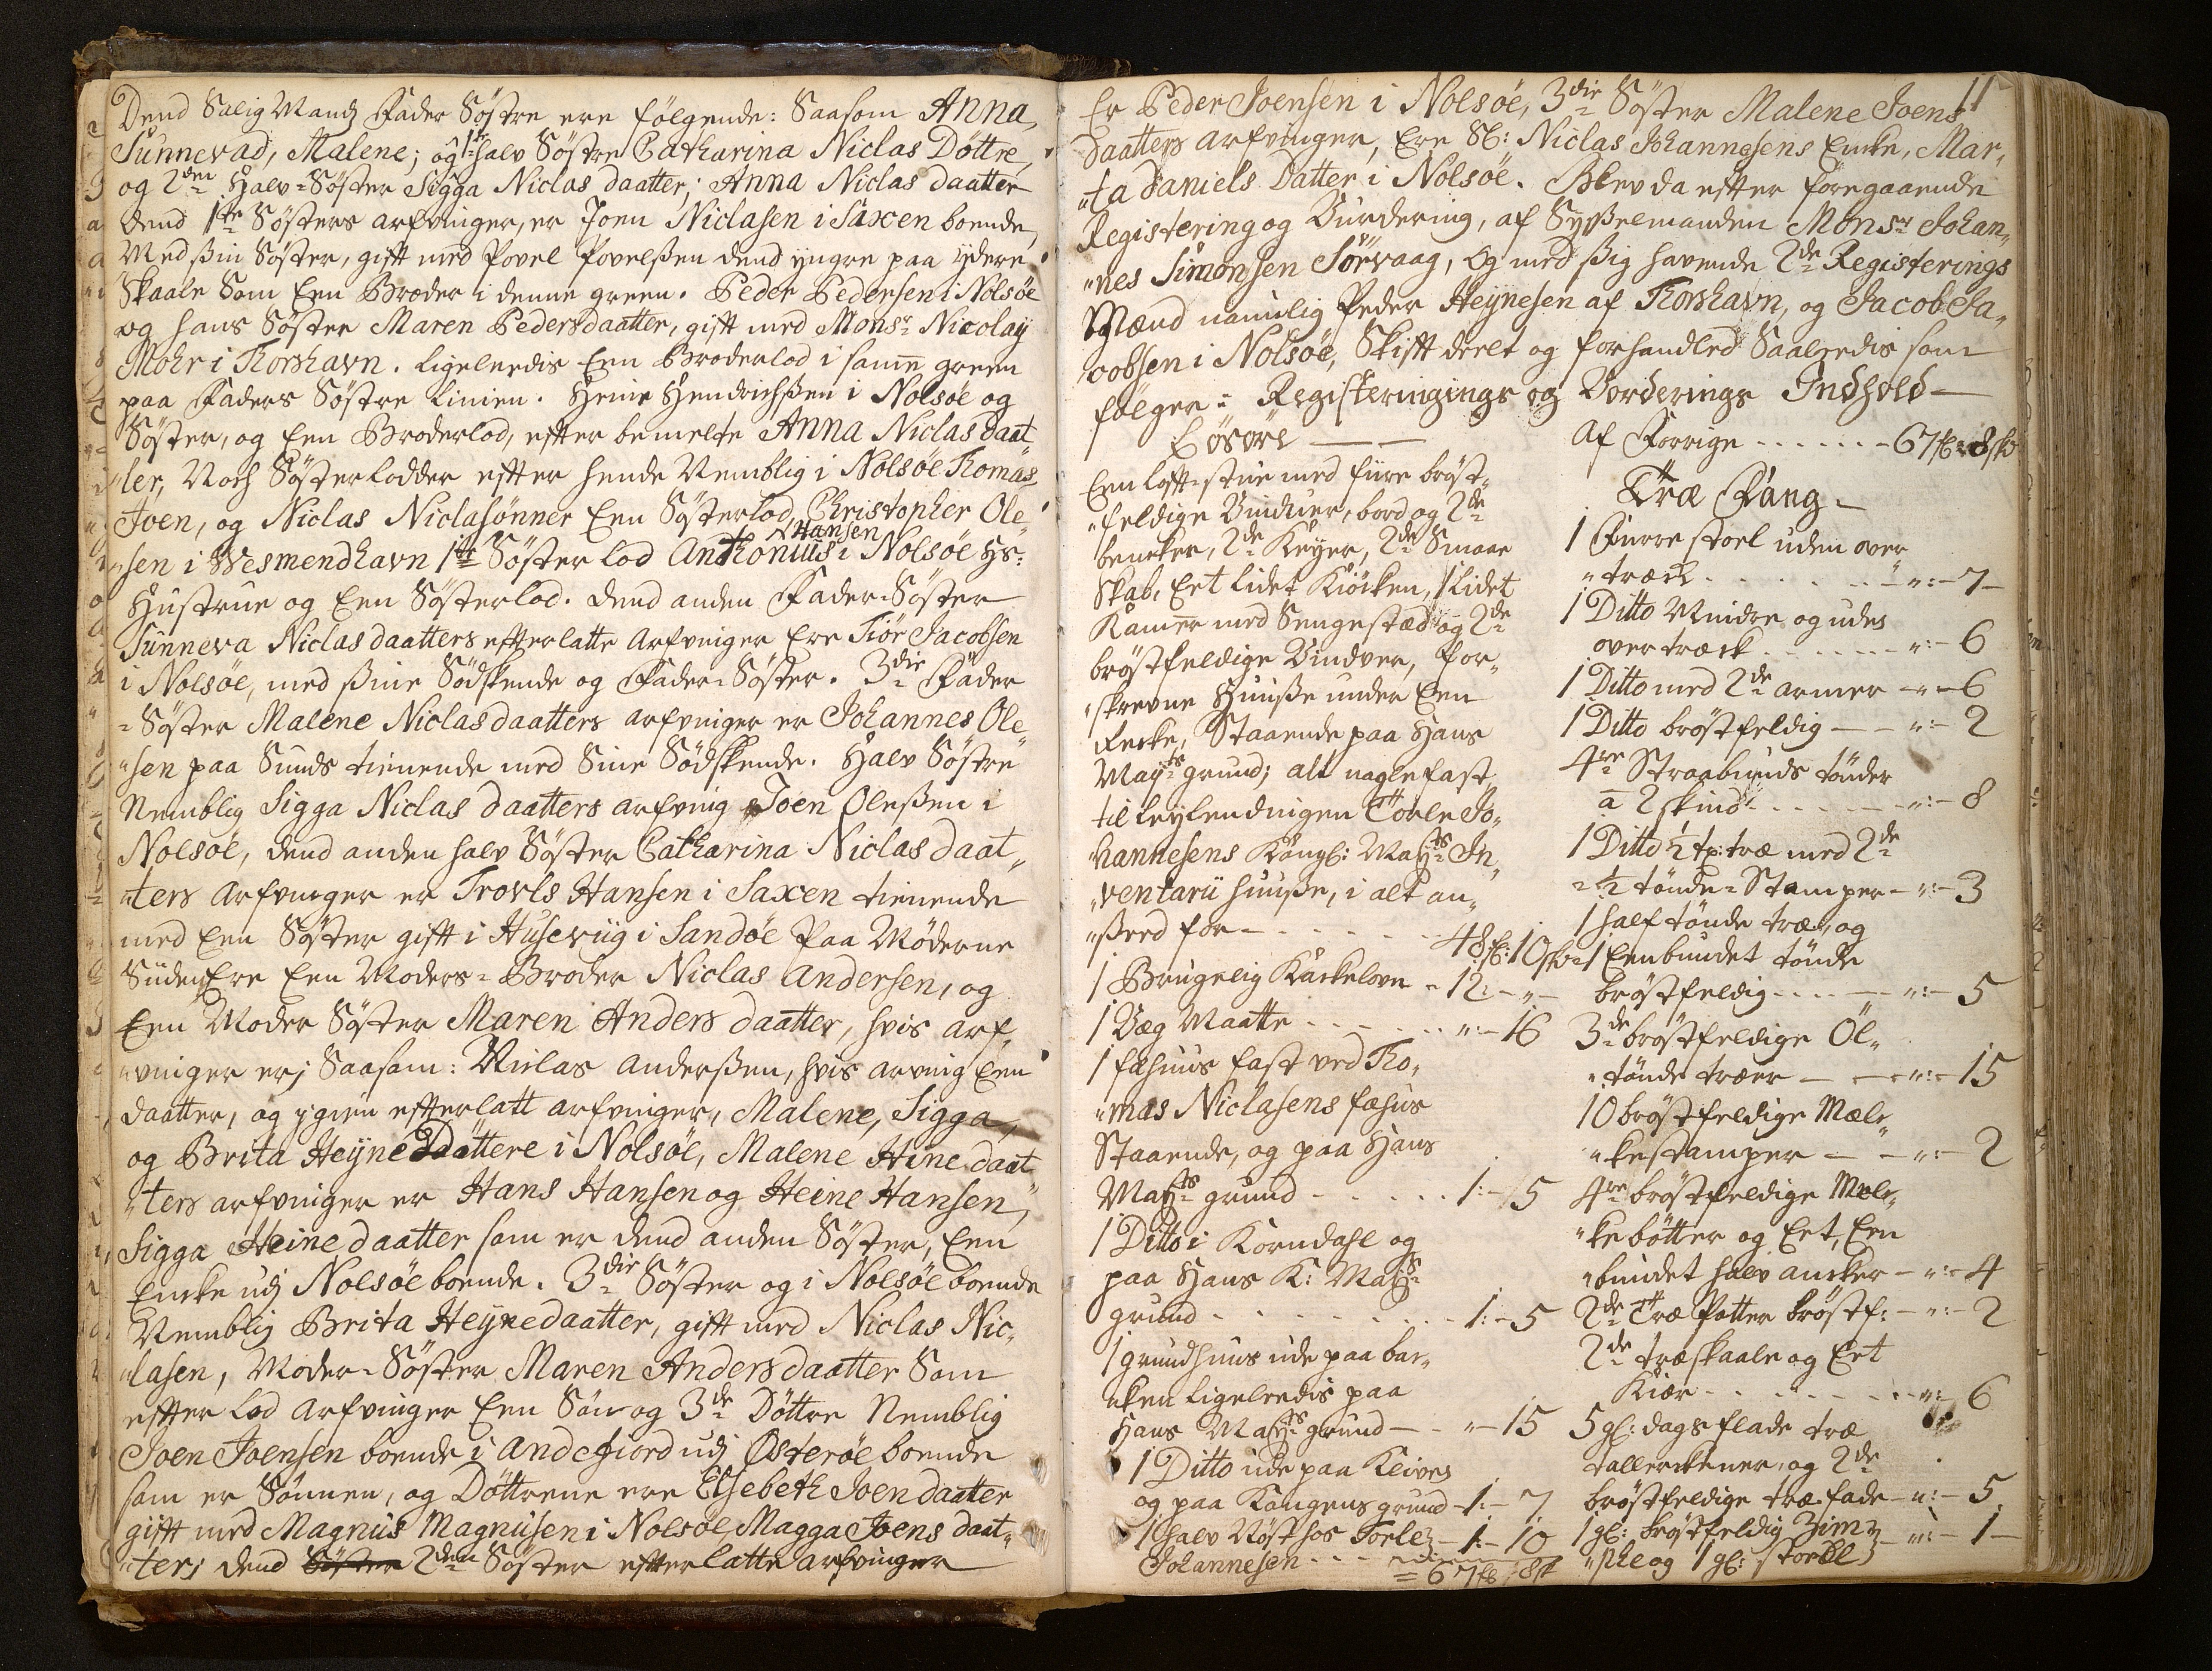 Dend Salig Mands Fader Søstre ere følgende: Saasom Anna,
Sunnevad, Malene; og 1ste halv Søstre Catharina Niclas Døttre,
og 2den Halv-Søster Sigga Niclas daatter; Anna Niclas daatter
dend 1te Søsters arfvinger, er Joen Niclasen i Saxen boende,
Med ßin Søster, gift med Povel Povelßen dend yngre paa ydere
Skaale Som Een Broder i denne green. Peder Pedersen i Nolsøe
og hans Søster Maren Pedersdaatter, gift med Monsr Nicolaÿ
Mohr i Thorshavn. Ligeleedis Een Broderlod i samme green
paa Faders Søstre Linien. Heine Hendrichßen i Nolsøe og
Søster, og Een Broderlod, efter bemelte Anna Niclas daat
"ter, Noch Søsterlodder efter hende Nemblig i Nolsøe Thomas,
Joen, og Niclas Niclasønner Een Søsterlod, Christopher Ole
Hansen
"sen i Wesmendhavn 1te Søster lod Anthonius i Nolsøe Hs:
Hustrue og Een Søsterlod. dend anden Fader-Søster
Sunneva Niclasdaatters efterlatte Arfvinger Ere Siør Jacobsen
i Nolsøe, med ßine Sødskende og Fader-Søster. 3die Fader
=Søster Malene Niclasdaatters arfvinger er Johannes Ole
"sen paa Sunds tienende med Sine Sødskende. Halv Søstre
Nemblig Sigga Niclas daatters arfving Joen Oleßen i
Nolsøe, dend anden halv Søster Catharina Niclas daat
"ters arfvinger er Trovls Hansen i Saxen tienende
med Een Søster gift i Huseviig i Sandøe Paa Møderne
Siiden Ere Een Moders-Broder Niclas Andersen, og
Een Moder Søster Maren Anders daatter, hvis arf,
"vinger erj Saasom: Niclas Anderßen, hvis arving Een
daatter, og igien efterlatt arfvinger, Malene, Sigga,
og Brita Heyne Døttere i Nolsøe, Malene Hine daat
"ters arfvinger er Hans Hansen og Heine Hansen,
Sigga Heine daatter som er dend anden Søster, Een
Encke udj Nolsøe boende. 3die Søster og i Nolsøe boende
Nemblig Brita Heynedaatter, gift med Niclas Nic,
"lasen, Moder-Søster Maren Anders daatter Som
efter lod arfvinger Een Søn og 3de Døttre Nemblig
Joen Joensen boende i Andefiord udj Østerøe boende
som er Sønnen, og Døttrene ere Elsebeth Joen daatter
gift med Magnus Magnusen i Nolsøe, Magga Joens daat
"ter; dend Søster 2den Søster efterlatte arfvinger
11
Er Peder Joensen i Nolsøe, 3die Søster Malene Joens
daatters arfvinger, Ere Sl: Niclas Johannesens Encke, Mar,
"ta Daniels Datter i Nolsøe. Blev da efter foregaaende
Registering og Vurdering, af Sysselmanden Monsr Johan,
"nes Simonsen Sørvaag, og med ßig havende 2de Registerings
Mænd namlig Peder Heynesen af Thorshavn, og Jacob Ja,
cobsen i Nolsøe, Skift deelt og forhandled Saaledis som
følger: Registeringings og Vorderings Indhold
Løsøre
Een loftstue med fiire brøst,
"feldige Vinduer, bord og 2de
bencker, 2de Keyer, 2de Smaae
Skab, Eet lidet Kiöcken, 1 Lidet
Kammer med Sengestæd og 2de
brøstfeldige Vindver, for,
"skrevne Huuße under Een
Recke, Staaende paa Hans
Mayts grund; alt naglefast
til Leylendingen Torle Jo,
"hannesens Kongl: Mayts In,
"ventarii huuße, i alt an,
"ßeed for - 48 fl: 10 sk
1 Brugelig Kackelovn - 12: - " -
1 Væg Maatte - ": - 16
1 fæhuus fast ved Tho,
"mas Niclasens fæhus
Staaende, og paa Hans
Mayts grund - 1: - 15
1 Ditto i Korndahl og
paa Hans K: Mayts
grund - 1: - 5
1 grundhuus ude paa bac,
"ken ligeleedis paa
Hans Mayts grund - " - 15
1 Ditto ude paa Kleiven
og paa Kongens grund - 1: - 7
1 halv Nøst hos Torle - 1: - 10
Johannesen - = 67 fl: 8 sk
Af Forrige - 67 fl: 8 sk
Træ Fang
1 Furre stoel uden over
"træck - ": - 7
1 Ditto Mindre og uden
overtræck - ": - 6
1 Ditto med 2de armer - " - 6
1 Ditto brøstfeldig - ": - 2
4re Straabunds tønder
a 2 skind - ": - 8
1 Ditto ½ tr: træ med 2de
= ½ tønde-Stamper - ": - 3
1 half tønde træ, og
1 Eenbundet tønde
brøstfeldig - ": - 5
3de brøstfeldige Öl,
"tønde træer - ": - 15
10 brøstfeldige Mæl,
"kestamper - ": - 2
4re brøstfeldige Mæl,
"ke bøtter og Eet, Een
"bundet halv ancker - ": - 4
2de Træ Potter brøstf: - ": - 2
2de træskaale og Eet
Kiær - ": - 6
5 gl: dags flade træ
tallerckener, og 2de
brøstfeldige træ fade - ": - 5
1 gl: brøstfeldig Zim - ": - 1
"ske og 1 gl: stoebl